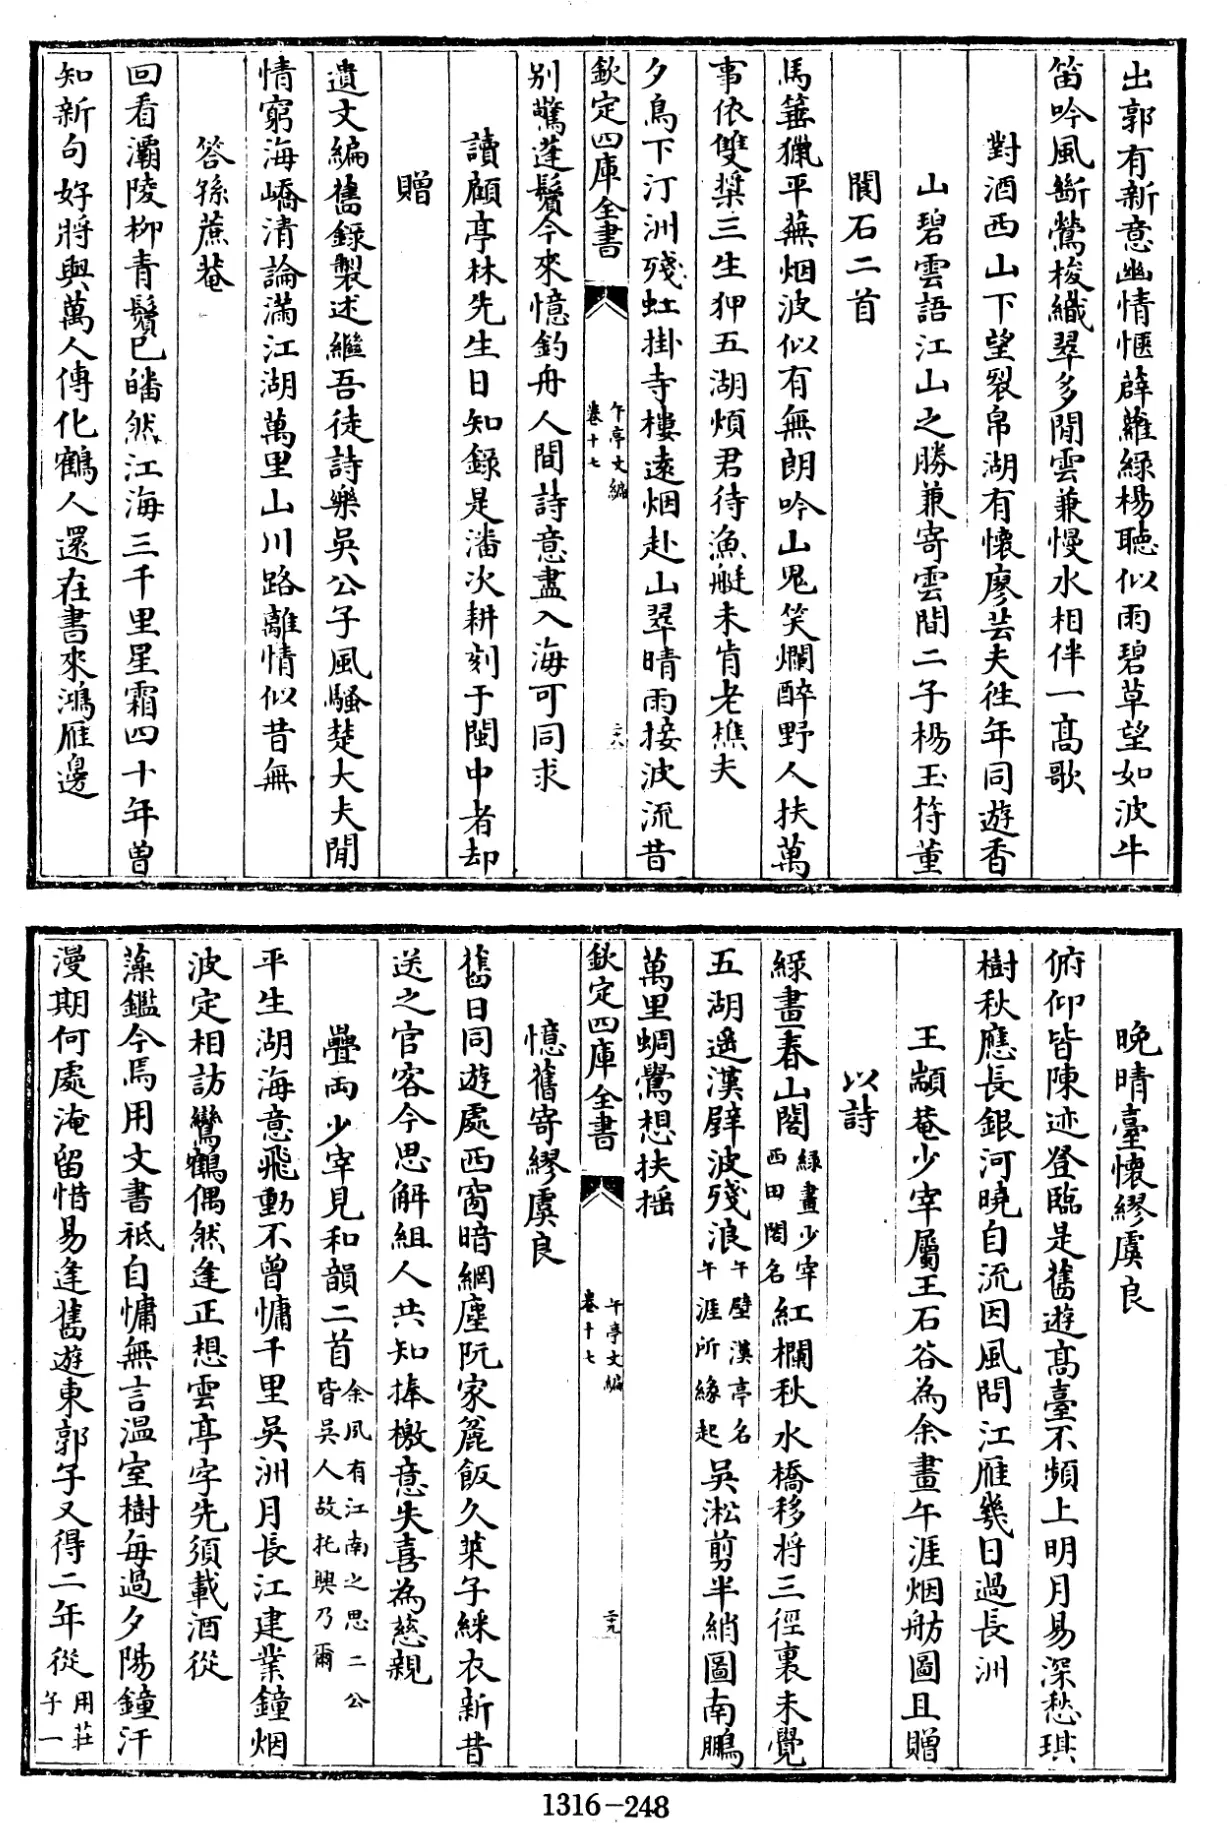 出郭有新意幽情愜薜蘿綠楊聽似雨碧草望如波牛
笛吟風斷鶯梭織翠多閒雲兼慢水相伴一高歌
對酒西山下望裂帛湖有懷廖芸夫徃年同遊香
山碧雲語江山之勝兼寄雲間二子楊玉符董
閬石二首
馬箠獵平蕪烟波似有無朗吟山鬼笑爛醉野人扶萬
事依雙槳三生狎五湖煩君待漁艇未肯老樵夫
夕鳥下汀洲殘虹掛寺樓遠烟赴山翠晴雨接波流昔
欽定四庫全書
午亭文編
卷十七
二八
別驚蓬鬢今來憶釣舟人間詩意盡入海可同求
讀顧亭林先生日知錄是潘次耕刻于閩中者却
贈
遺文編舊錄製述繼吾徒詩樂吳公子風騷楚大夫閒
情窮海嶠清論滿江湖萬里山川路離情似昔無
答孫蔗菴
回看灞陵柳青鬢已皤然江海三千里星霜四十年曾
知新句好將與萬人傳化鶴人還在書來鴻雁邊
晚晴臺懷繆虞良
俯仰皆陳迹登臨是舊遊高臺不頻上明月易深愁琪
樹秋應長銀河曉自流因風問江雁幾日過長洲
王顓菴少宰屬王石谷為余畫午涯烟舫圖且贈
以詩
綠畫春山閣綠畫少宰西田閣名紅欄秋水橋移將三徑裏未覺
五湖遥漢壁波殘浪午壁漢亭名午涯所緣起吳淞剪半綃圖南鵬
萬里蜩鷽想扶搖
欽定四庫全書
午亭文編
卷十七
二九
憶舊寄繆虞良
舊日同遊處西窗暗網塵阮家麄飯久萊子綵衣新昔
送之官客今思解組人共知捧檄意失喜為慈親
疊兩少宰見和韻二首余夙有江南之思二公皆吳人故托興乃爾
平生湖海意飛動不曾慵千里吳洲月長江建業鐘烟
波定相訪鸞鶴偶然逢正想雲亭字先須載酒從
藻鑑今焉用文書祗自慵無言温室樹每過夕陽鐘汗
漫期何處淹留惜易逢舊遊東郭子又得二年從用莊子一
1316-248